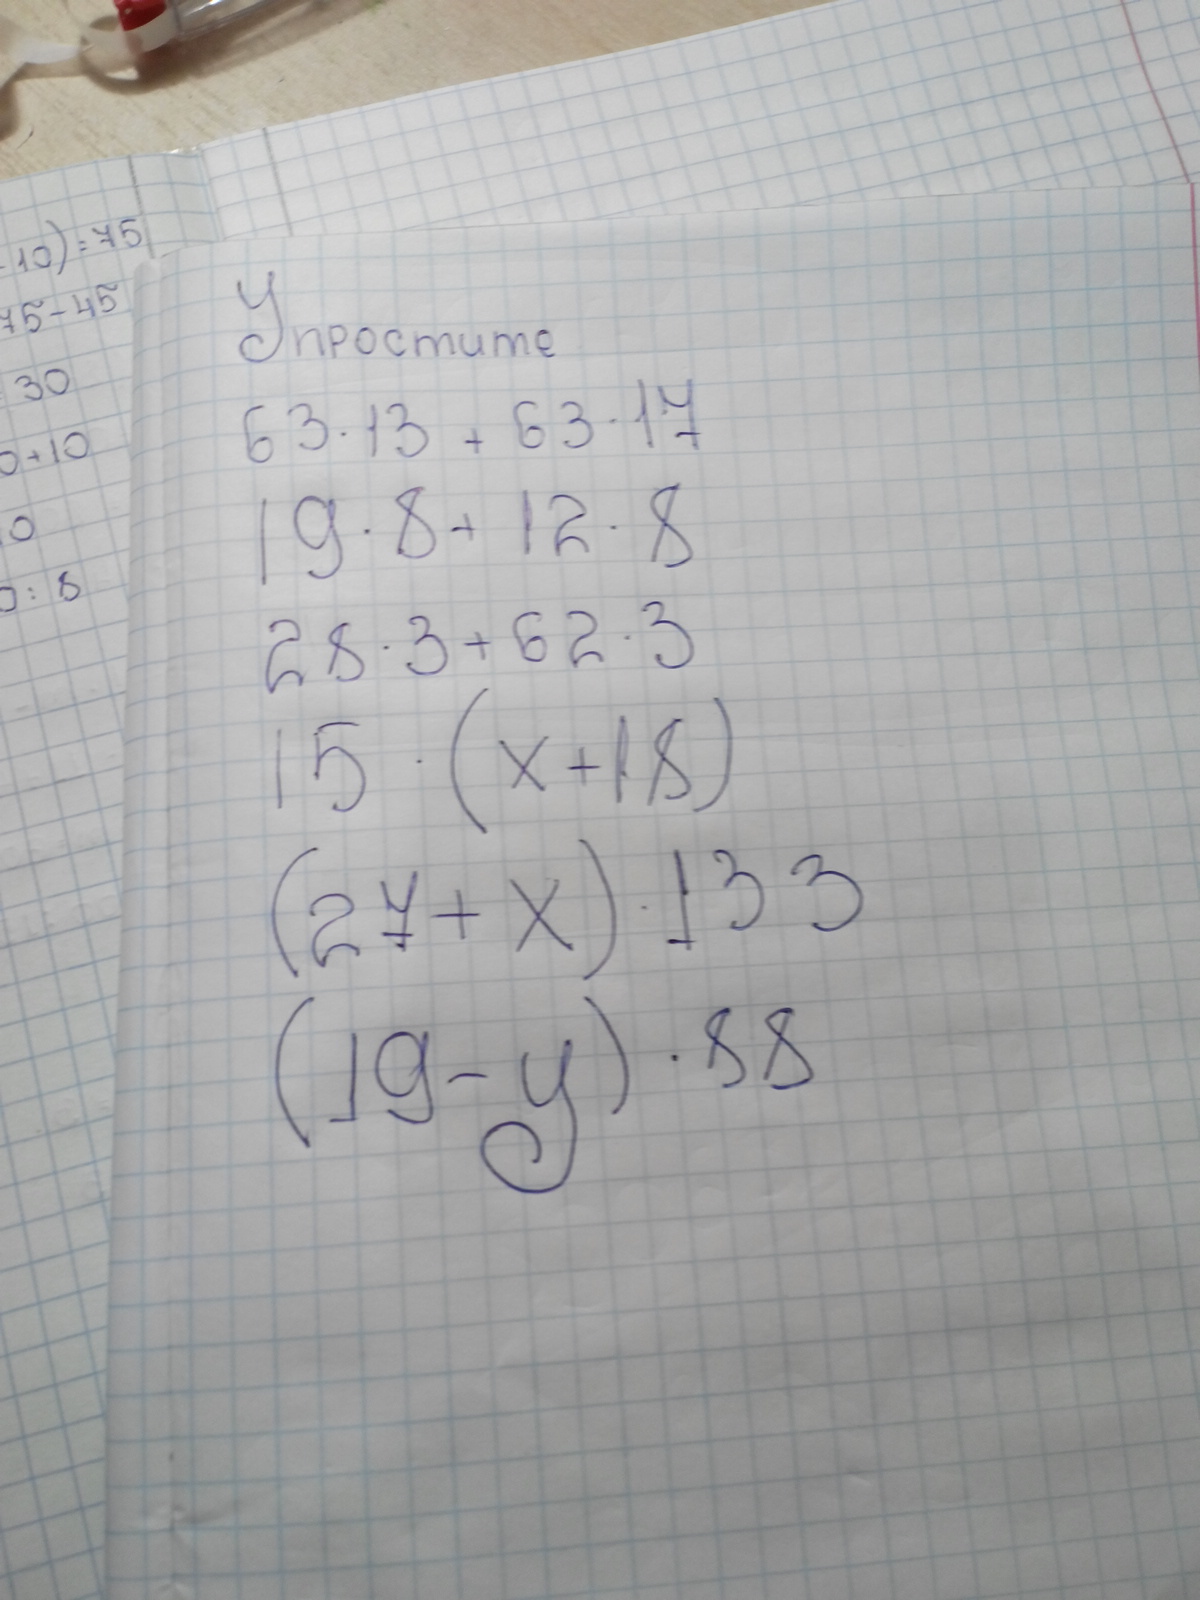 -10)=75
75-45
30
0+10
10
0:8
Упростите
63·13+63·17
19·8+12·8
28·3+62·3
15·(x+18)
(27+x)·133
(19-y)·88